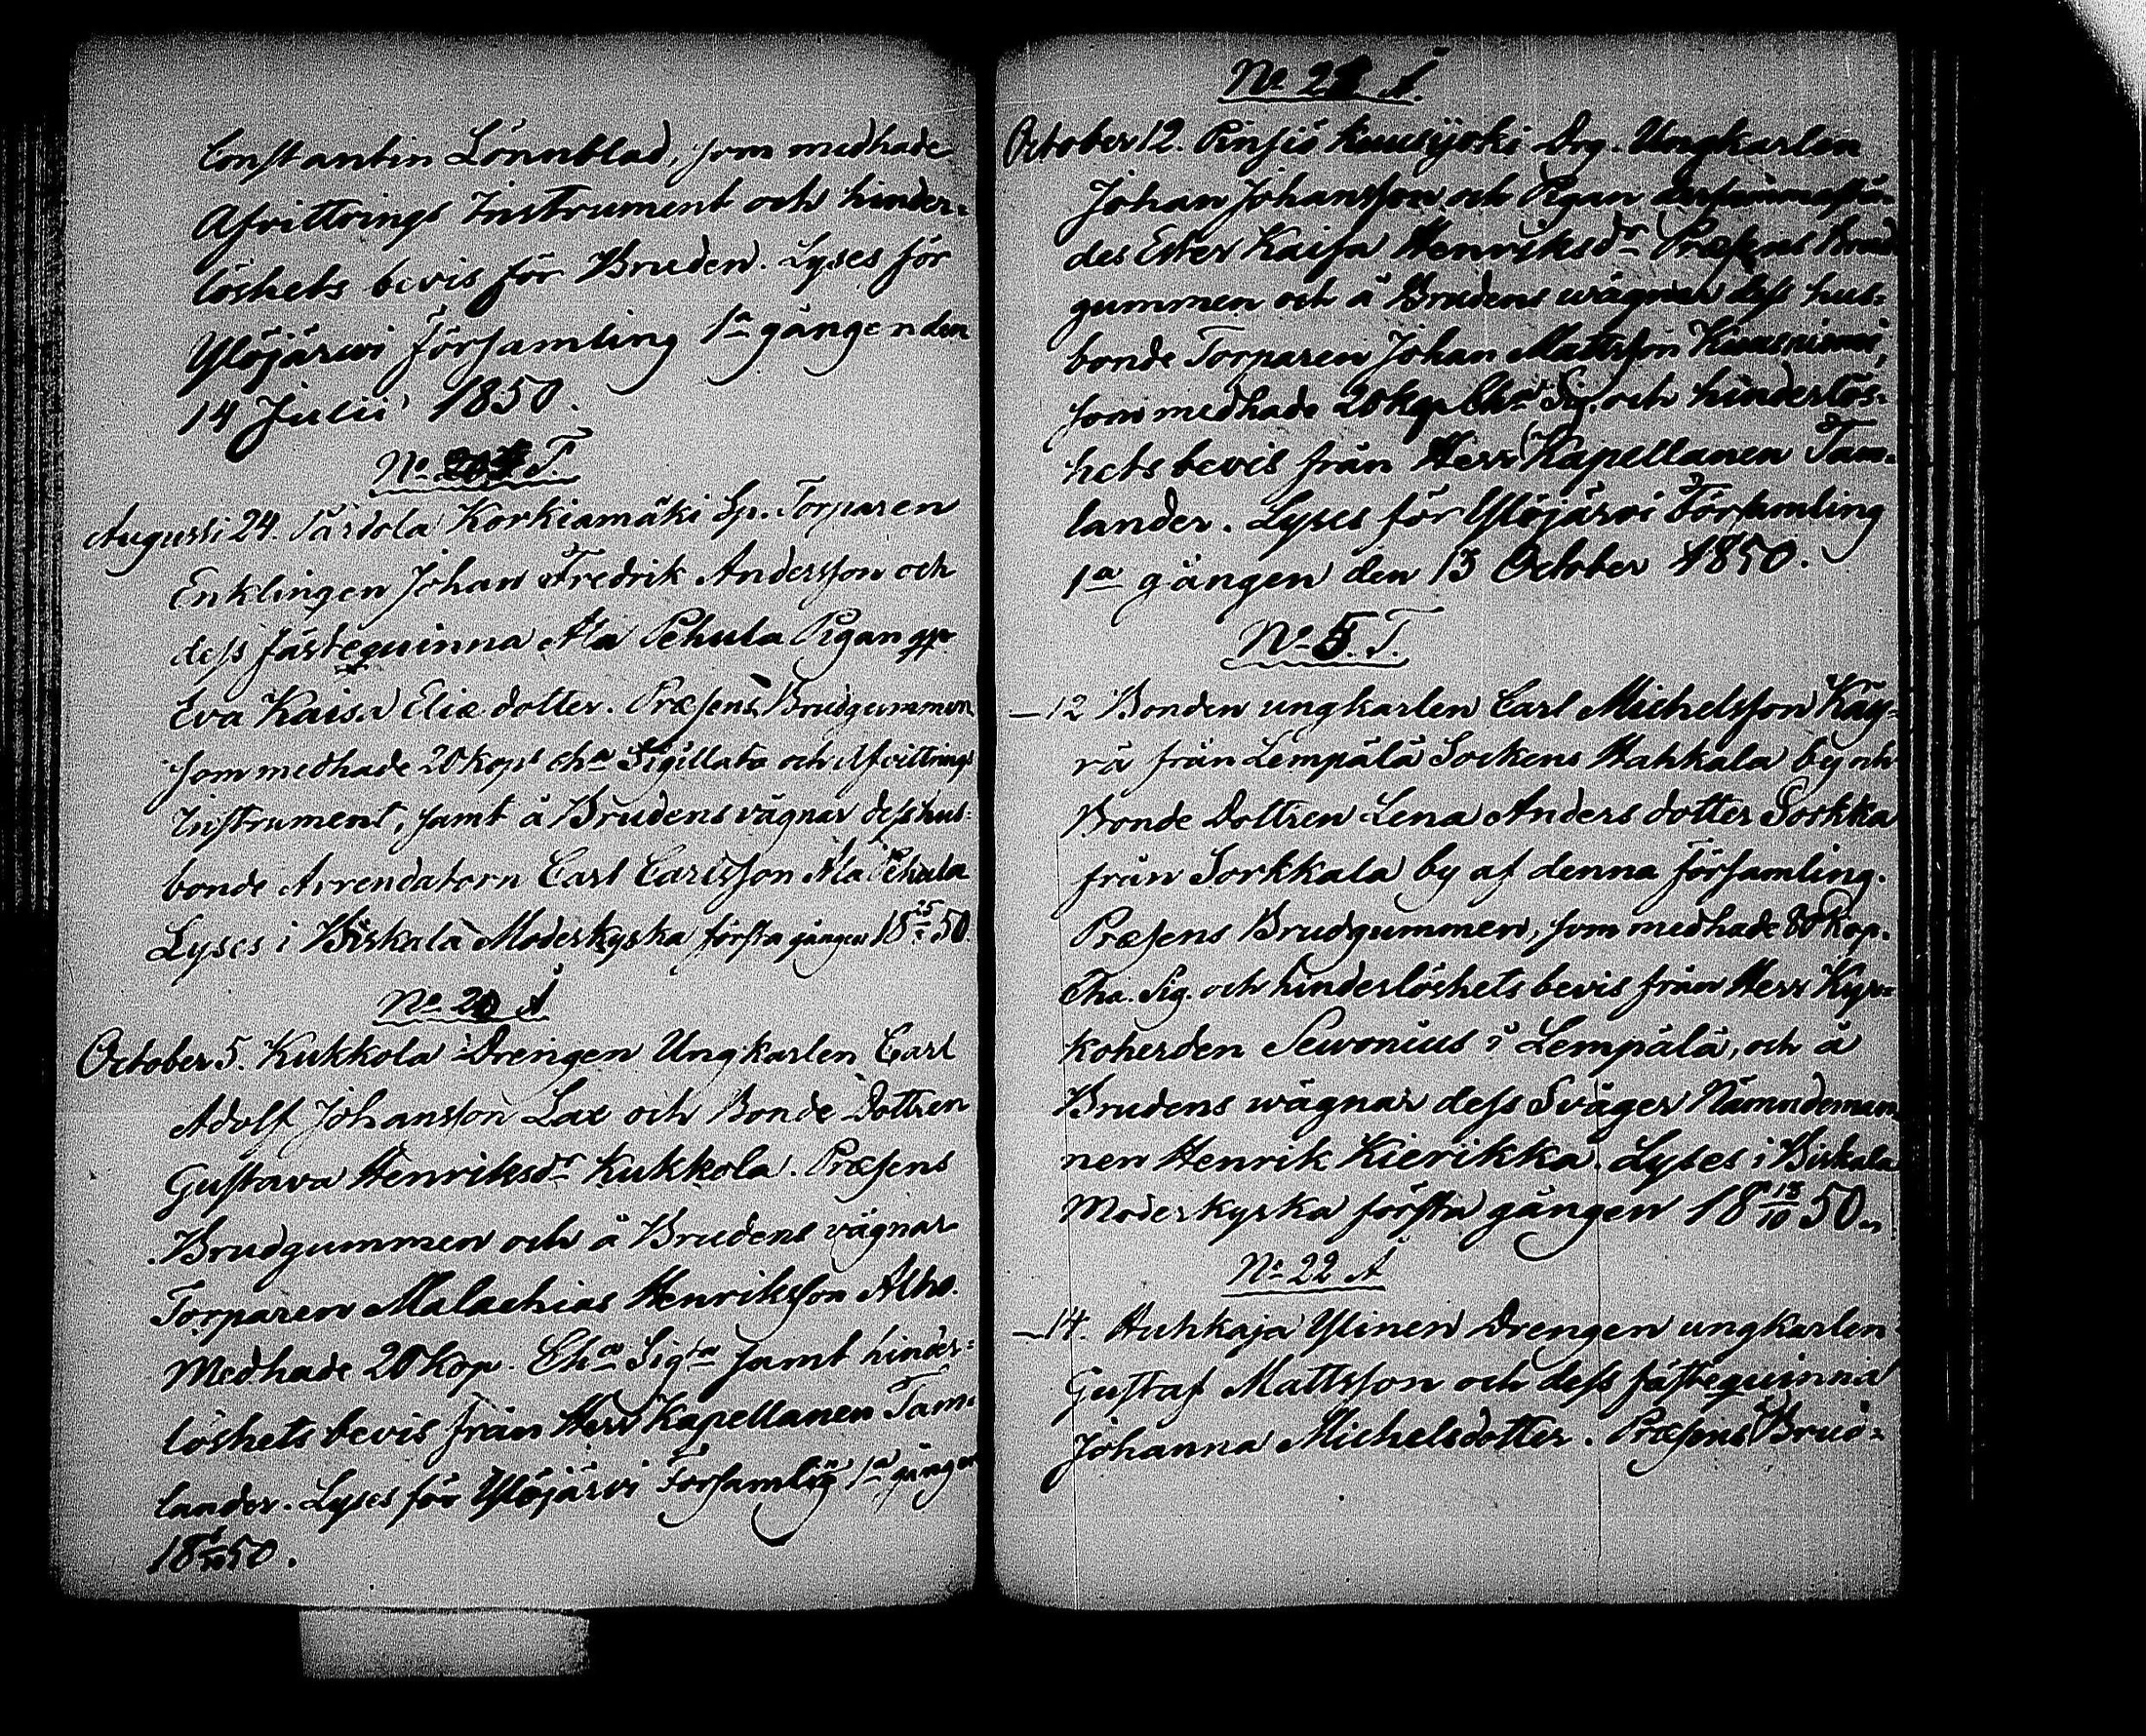 Constantin Lönnblad, som medhade
Afvittrings Instrument och hinder=
löshets bevis för Bruden. Lyses för
Ylöjärwi Församling 1a gången den
14 Julii 1850.
No T.
Augusti 24. Pärdola Korkiamäki Sp. Torparen
Enklingen Johan Fredrik Andersson och
dess fästequinna Ala Pehula Pigan
Eva Kaisa Eliæ dotter. Præsens Brudgummen
som medhade 20 kops cha Sigillata och Afvittrings
Instrument, samt å Brudens vägnar dess hus=
bonde Arrendatorn Carl Carlsson Ala Pehula
Lyses i Birkala Moderkyrka första gången 18 25 50.
No 20 A
October 5. Kukkola Drengen Ungkarlen Carl
Adolf Johansson Lax och Bonde Dottren
Gustava Henriksdr Kukkola. Præsens
Brudgummen och å Brudens vägnar
Torparen Malachias Henriksson Alho.
Medhade 20 kop. Cha Sigta samt hinder=
löshets bevis från Herr Kapellanen Tam=
lander. Lyses för Ylöjärvi Församling 1a gången
18 50.
No 21 A.
October 12. Pinsiö Kuusijoki Drg. Ungkarlen
Johan Johansson och Pigan
des Ester Kaisa Henriksdr Præsens Brud
gummen och å Brudens wägnar dess hus=
bonde Torparen Johan Mattsson Kuusniemi,
som medhade 20 kop Cha Sig. och hinderlös=
hets bevis från Herr Kapellanen Tam=
lander. Lyses för Ylöjärvi Församling
1a gången den 13 October 1850.
No 5. T.
— 12 Bonden ungkarlen Carl Michelsson Käy=
rä från Lempälä Sockens Hahkala by och
Bonde Dottren Lena Anders dotter Sorkka
från Sorkkala by af denna församling.
Præsens Brudgummen, som medhade 80 kop.
Cha. Sig. och hinderlöshets bevis från Herr Kyr=
koherden Sewonius i Lempälä, och å
Brudens wägnar dess Svåger Nämndeman
nen Henrik Kierikka. Lyses i Birkala
Moderkyrka första gången 18 13/10 50.
No 22 A
— 14. Huhkaja Ylinen Drengen ungkarlen
Gustaf Mattsson och dess fästequinna
Johanna Michelsdotter. Præsens Brud=